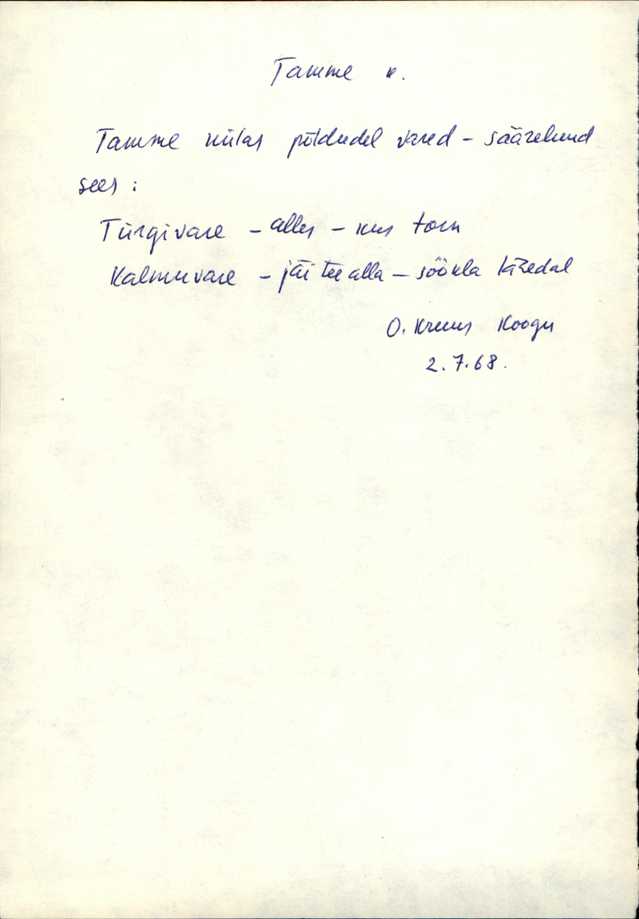 Tamme k.
Tamme külas põldudel vared – sääreluud
sees :
Türgivare – alles – kus torn
Kalmuvare – jäi tee alla – söökla lähedal
O. Kruus Koogu
2.7.68.